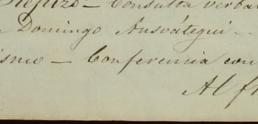 Consulta verba
Domingo Ansoátegui
ismo — Conferencia con
Al f